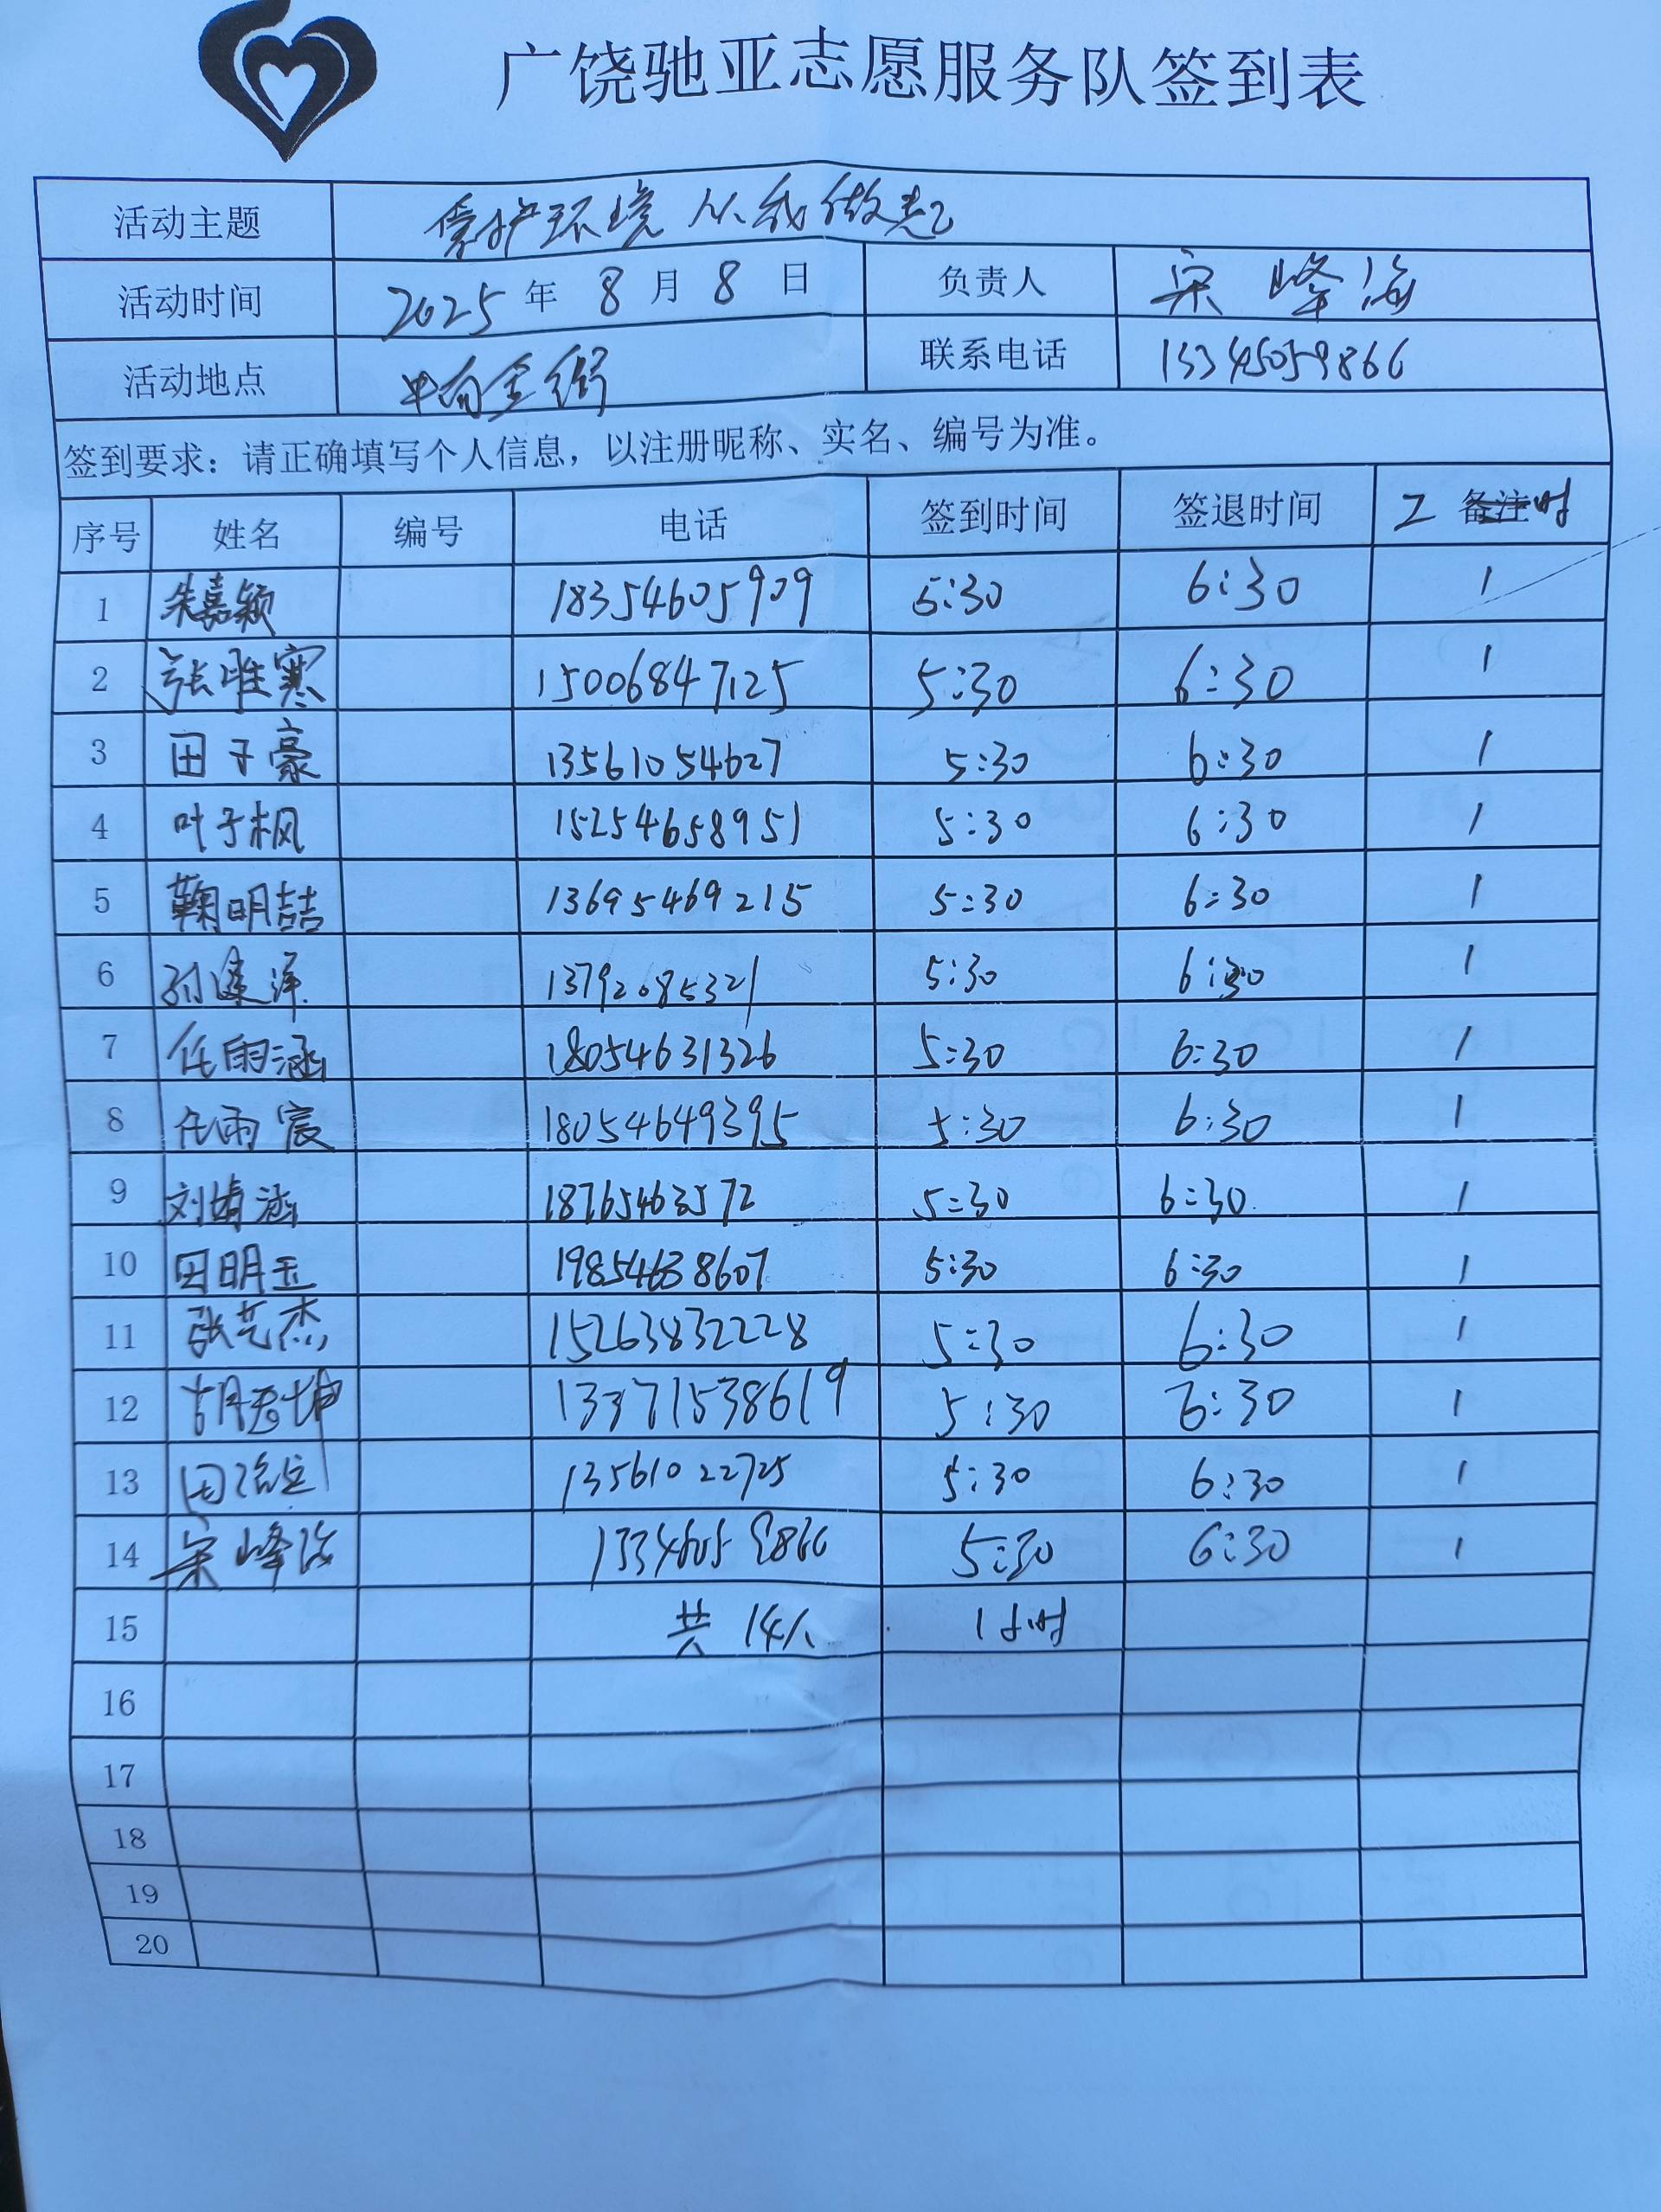 广饶驰亚志愿服务队签到表
活动主题 爱护环境 从我做起
活动时间 2025年 8月 8日 负责人 宋峰海
活动地点 中商金街 联系电话 13345059866
签到要求：请正确填写个人信息，以注册昵称、实名、编号为准。
序号 姓名 编号 电话 签到时间 签退时间 工 备注时
1 朱嘉颖 18354605909 5:30 6:30 1
2 张唯寒 15006847125 5:30 6:30 1
3 田子豪 13561054627 5:30 6:30 1
4 叶子枫 15254658951 5:30 6:30 1
5 鞠明喆 13695469215 5:30 6:30 1
6 13792085321 5:30 6:30 1
7 任雨涵 18054631326 5:30 6:30 1
8 任雨宸 18054649395 5:30 6:30 1
9 刘婧涵 18765463572 5:30 6:30 1
10 田明玉 19854638607 5:30 6:30 1
11 张艺杰 15263832228 5:30 6:30 1
12 13371538619 5:30 6:30 1
13 13561022725 5:30 6:30 1
14 宋峰海 13345059866 5:30 6:30 1
15 共 14人 1小时
16
17
18
19
20